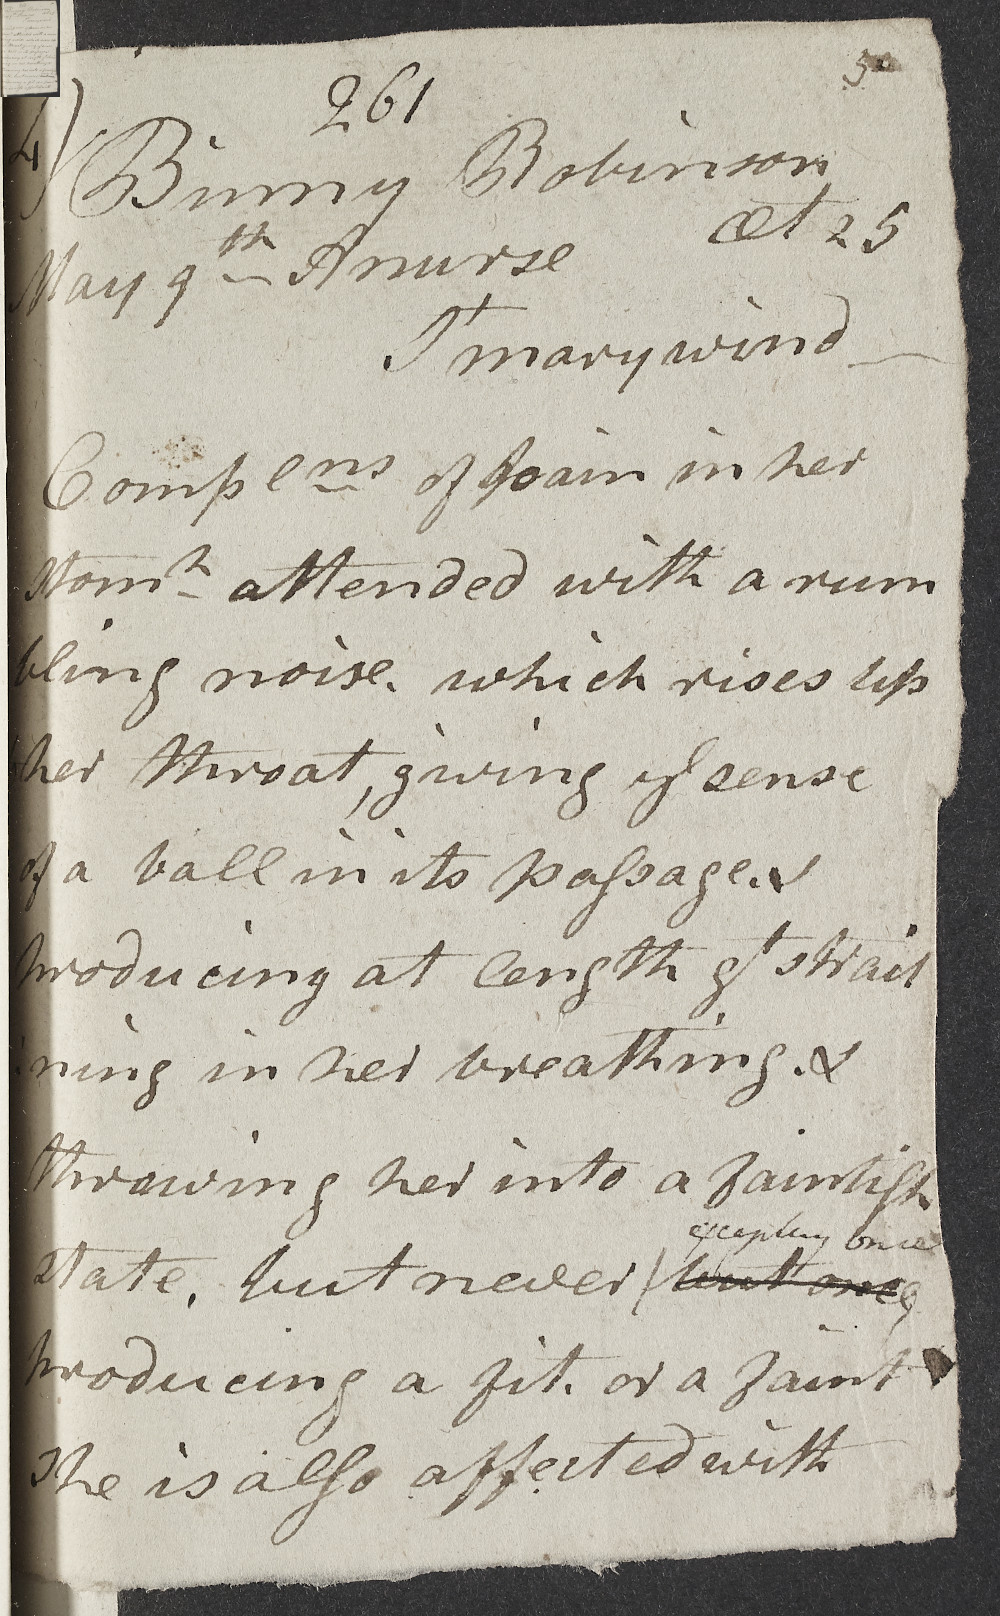 5
261
4)
Binny Robinson
æt 25
May 9th A nurse
St mary wind
Complens of pain in her
Stomh attended with a rum
bling noise. which rises up
her throat, giving ys sense
of a ball in its passage. &
producing at length gt strait
ning in her breathing. &
throwing her into a faintish
excepting once
state, but never but once
producing a fit. or a faint
She is also affected with